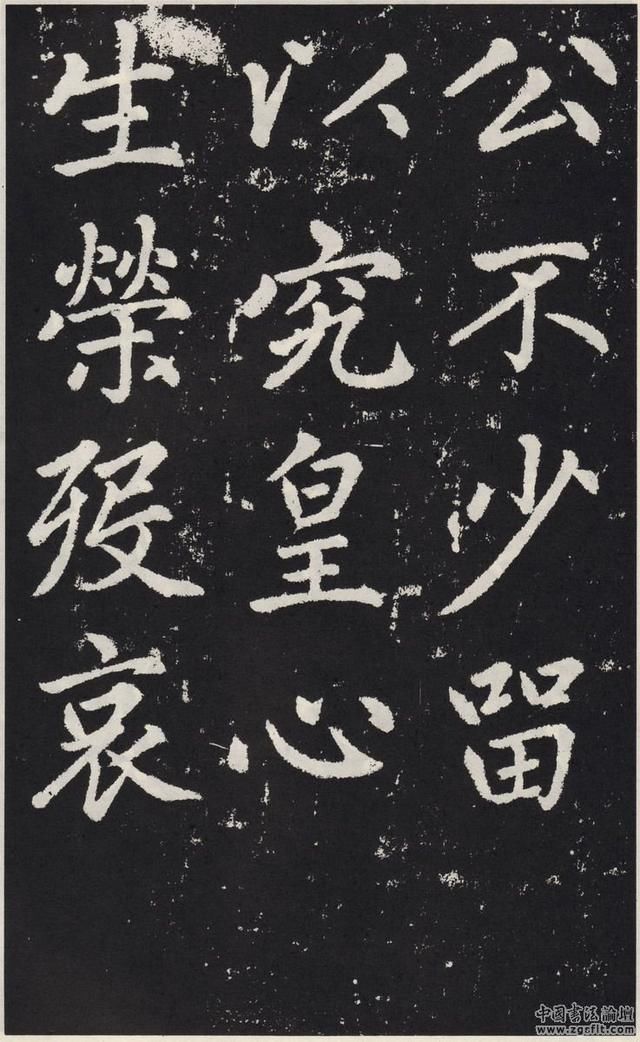 公不少留
以究皇心
生榮歿哀
中国书法論壇
www.zgsflt.com